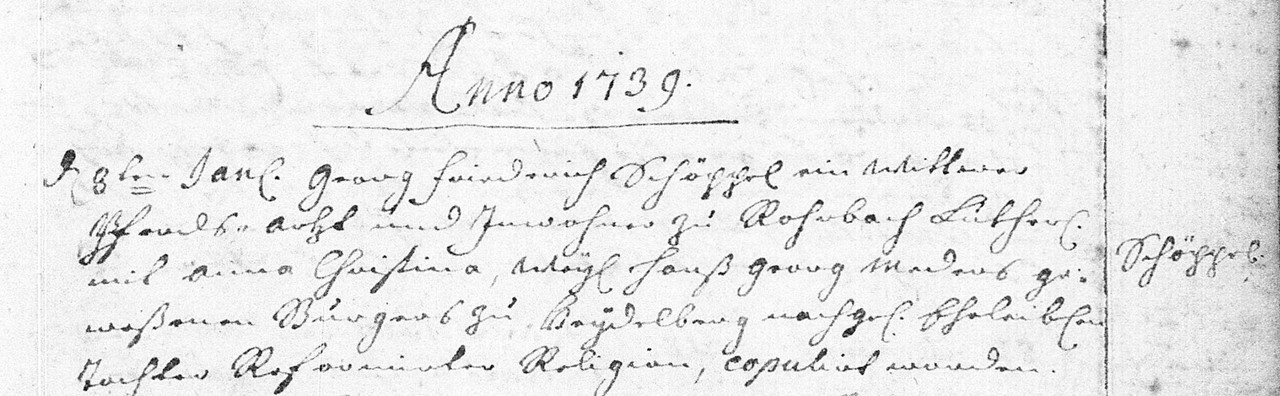 Anno 1739.
d. 8ten Janl. Georg Friederich Schöppel ein Wittwer
Pferds-artzt und Inwohner zu Rohrbach Lutherl.
mit Anna Christina, Weyl. Hanß Georg Meders ge-
weßenen Burgers zu Heydelberg nachgel. Eheleiblen
Tochter Reformirter Religion, copulirt worden.
Schöppel.